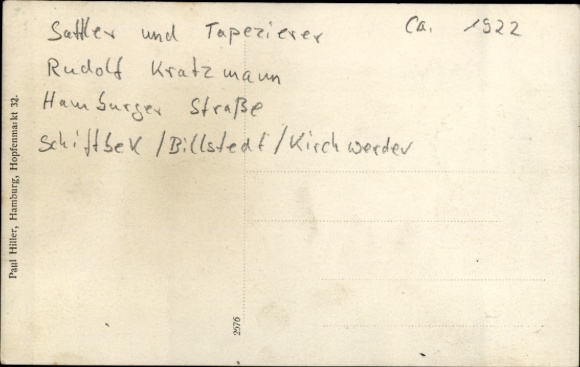 Sattler und Tapezierer
Ca. 1922
Rudolf Kratzmann
Hamburger Straße
Schiffbek / Billstedt / Kirchwerder
Paul Hiller, Hamburg, Hopfenmarkt 32.
2576